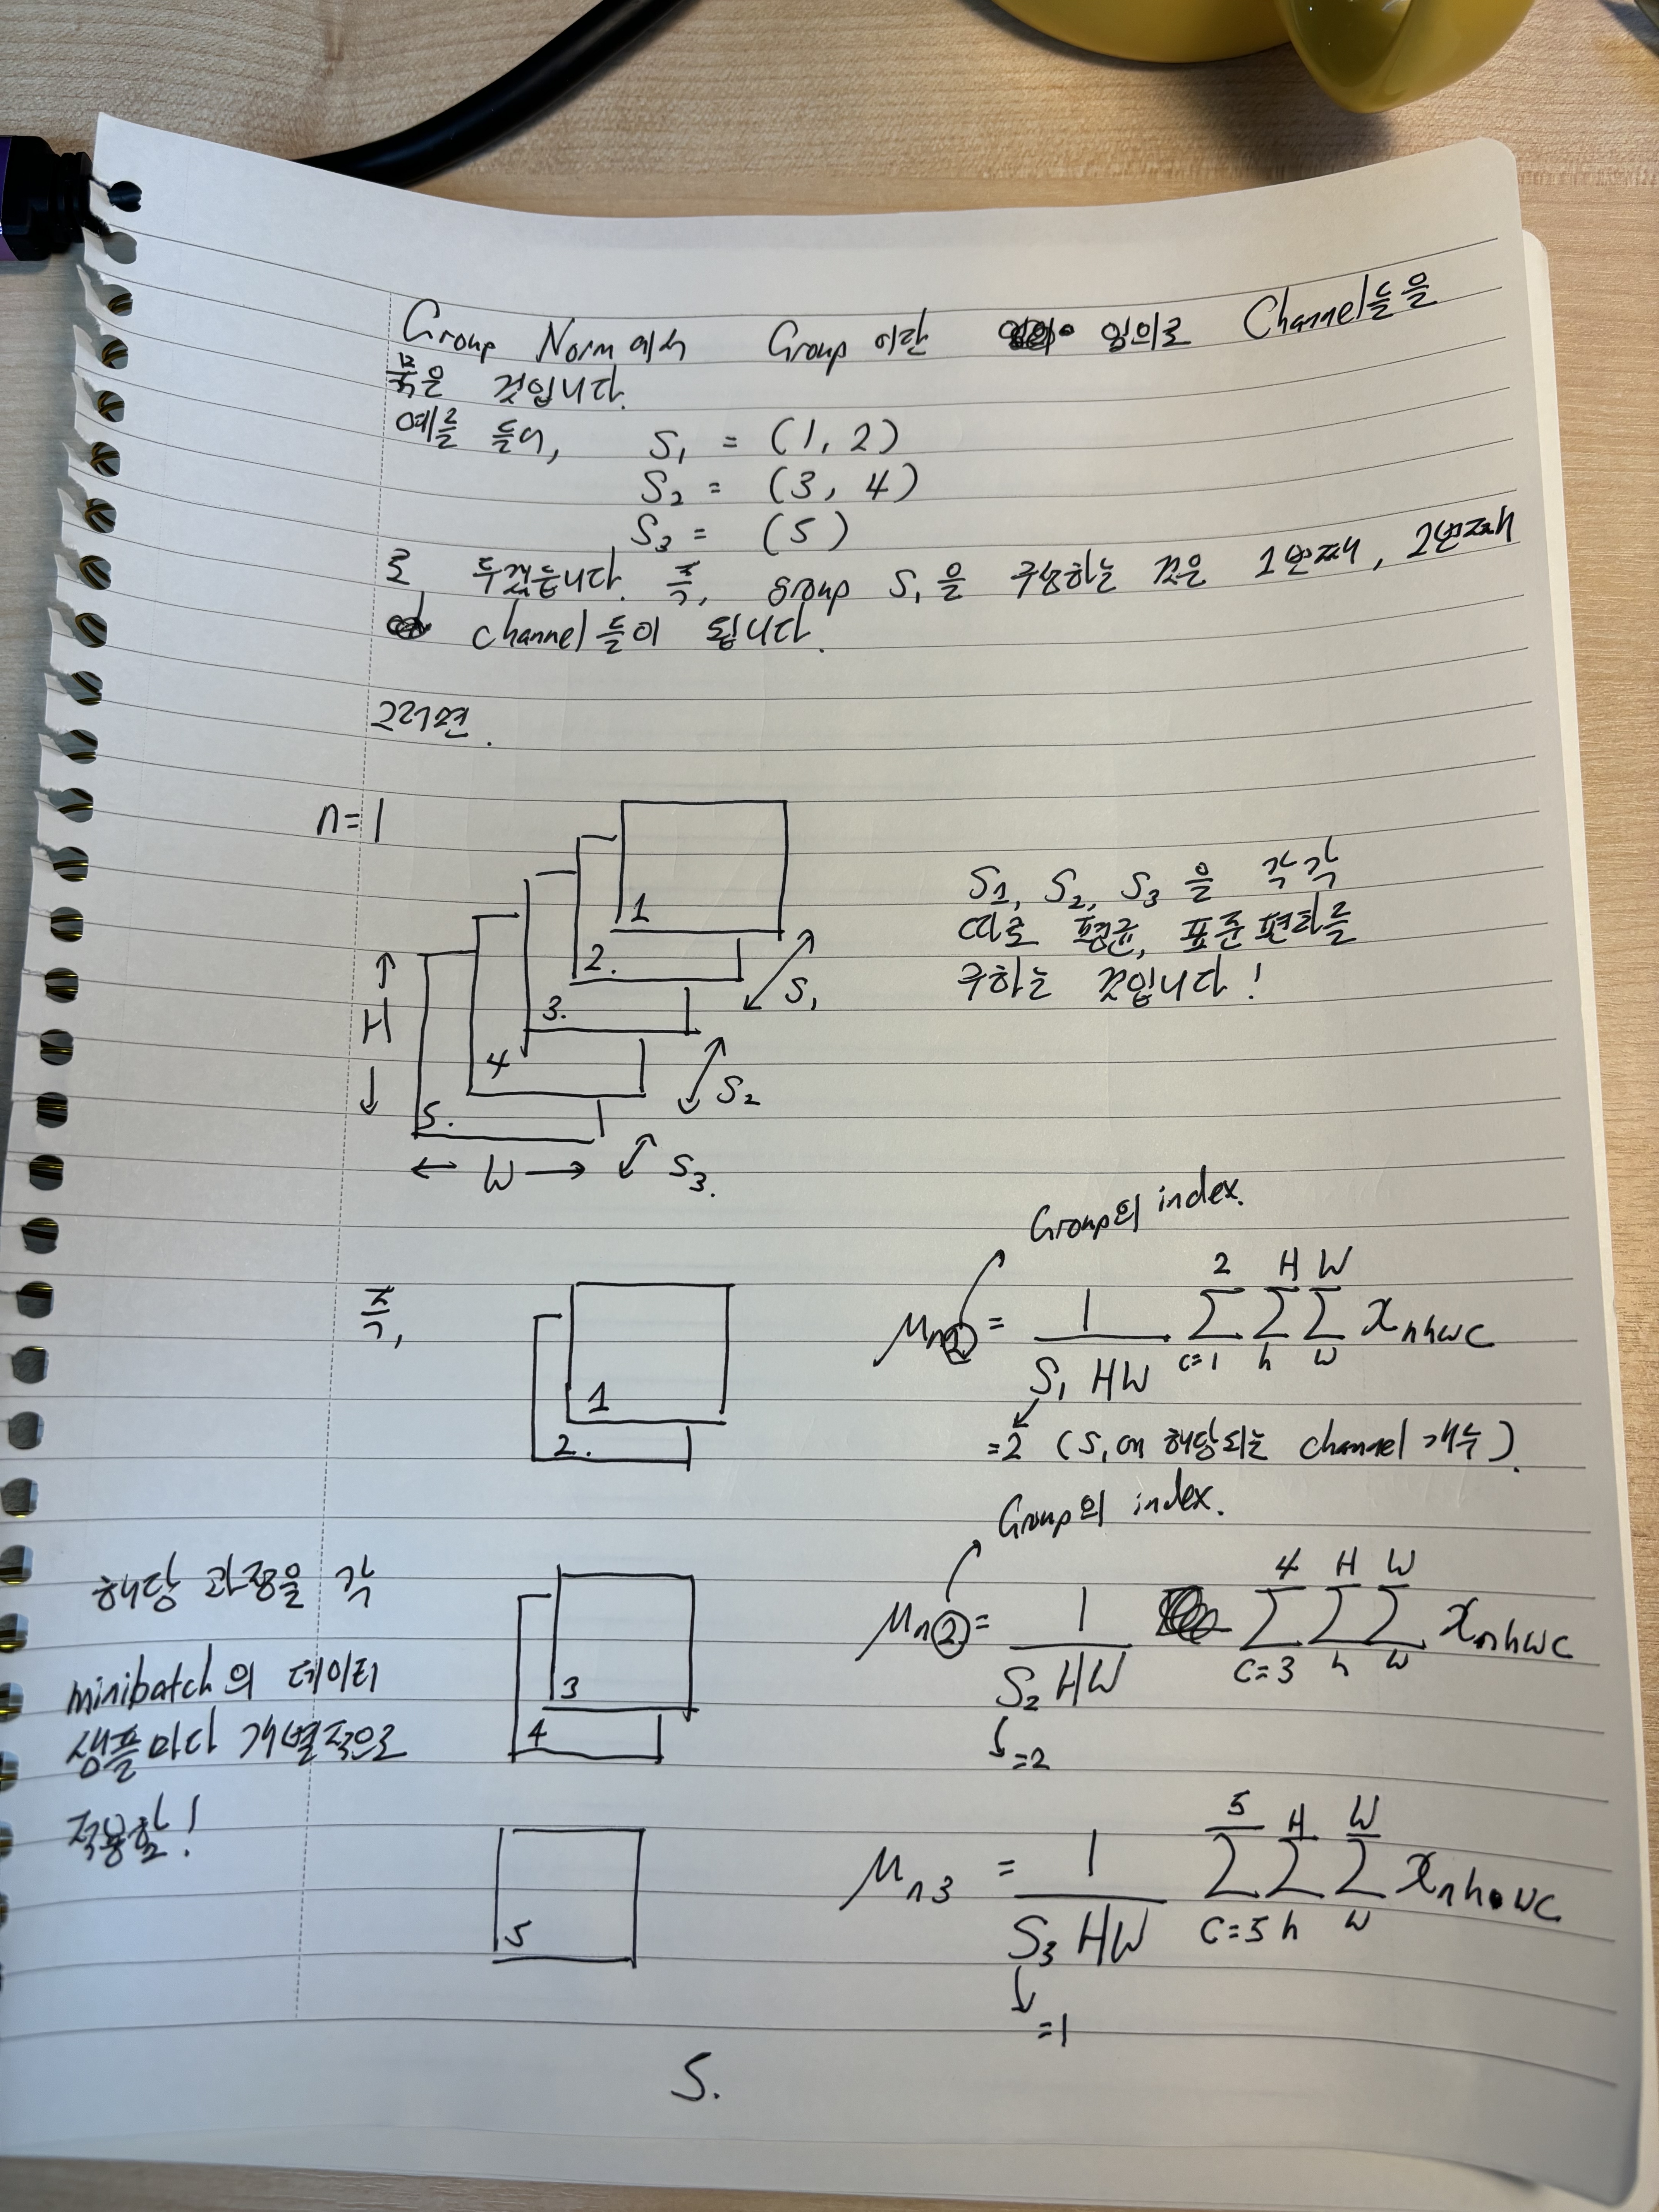 Group Norm에서 Group 이란 임의로 Channel들을
묶은 것입니다.
예를 들어, S₁ = (1, 2)
S₂ = (3, 4)
S₃ = (5)
로 두겠습니다. 즉, group S₁을 구성하는 것은 1번째, 2번째
channel들이 됩니다.
그러면.
n=1
1
2.
3.
4
5.
↑ H ↓
← W →
S₁
S₂
S₃.
S₁, S₂, S₃ 을 각각
따로 평균, 표준편차를
구하는 것입니다!
Group의 index.
즉,
1
2.
μn1 = 1/(S₁ HW) Σ(c=1→2) Σ(h→H) Σ(w→W) xnhwc
=2 (S₁에 해당되는 channel 개수).
Group의 index.
해당 과정을 각
minibatch의 데이터
샘플마다 개별적으로
적용함!
3
4
μn2 = 1/(S₂ HW) Σ(c=3→4) Σ(h→H) Σ(w→W) xnhwc
=2
5
μn3 = 1/(S₃ HW) Σ(c=5→5) Σ(h→H) Σ(w→W) xnhwc
=1
5.